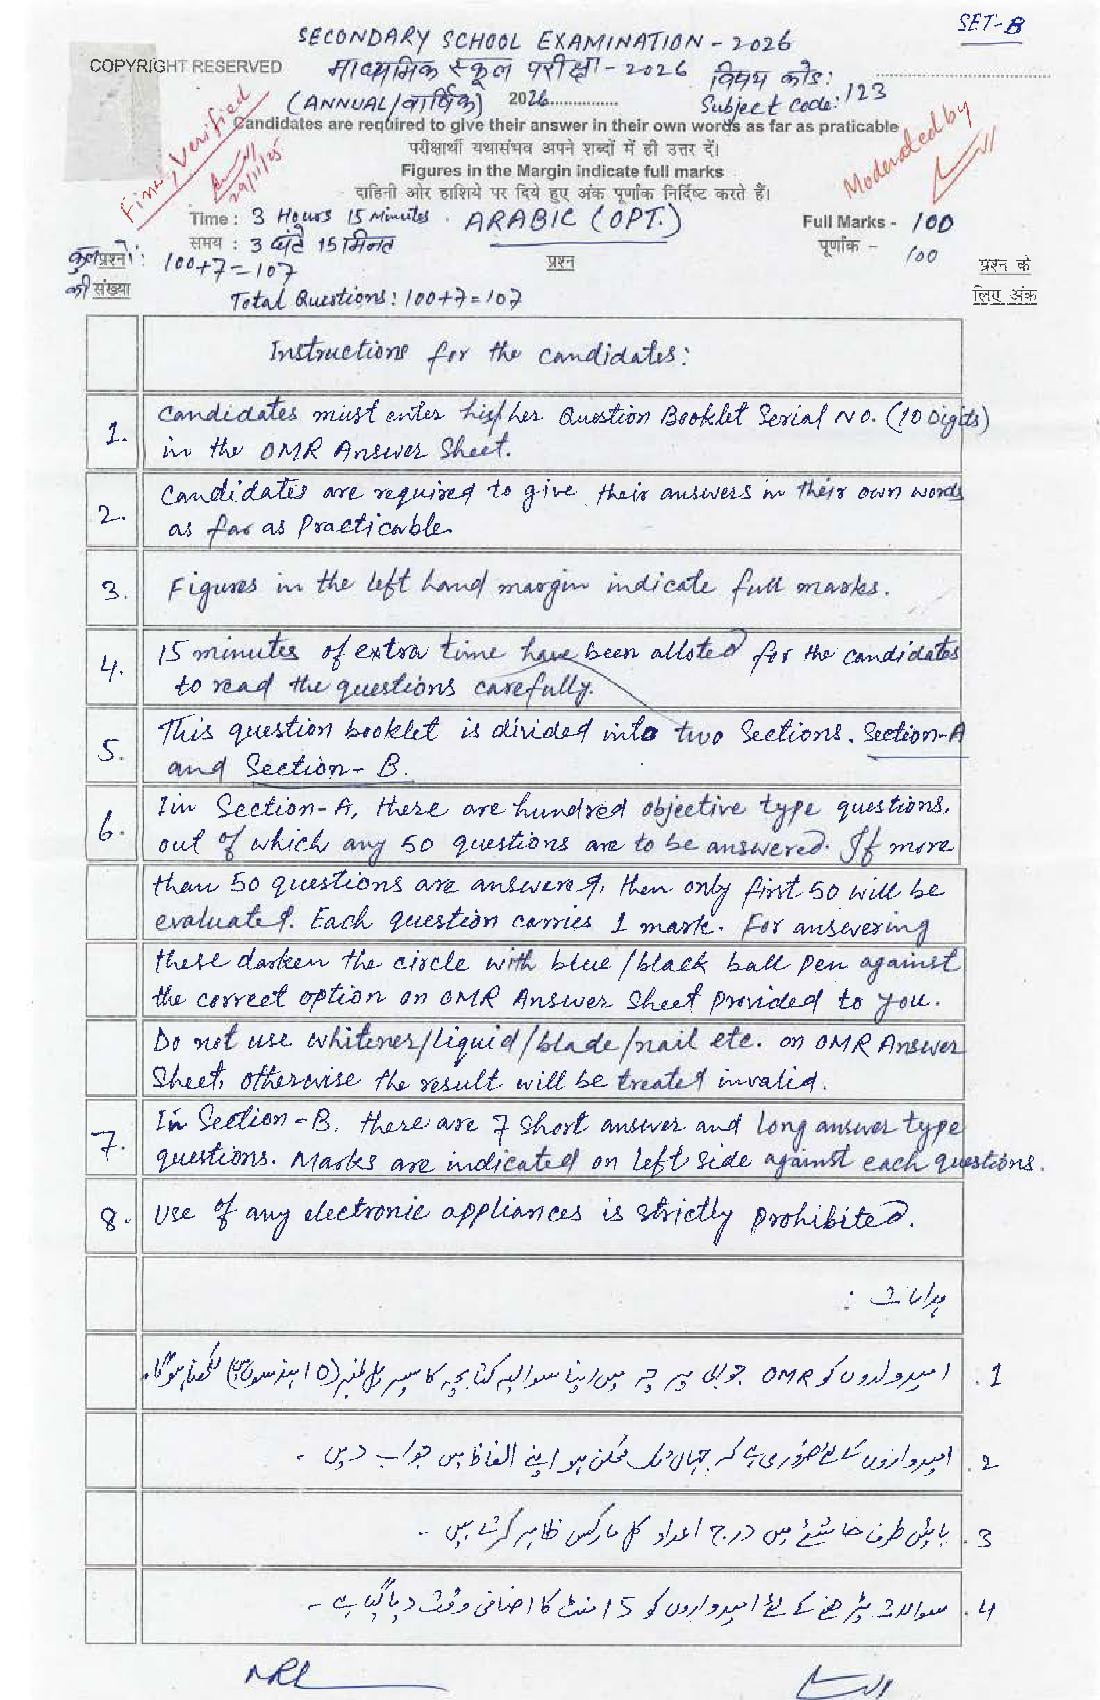 SET-B
SECONDARY SCHOOL EXAMINATION - 2026
COPYRIGHT RESERVED
माध्यमिक स्कूल परीक्षा - 2026
विषय कोड:
(ANNUAL/वार्षिक) 2026..............
Subject Code: 123
Candidates are required to give their answer in their own words as far as praticable
परीक्षार्थी यथासंभव अपने शब्दों में ही उत्तर दें।
Figures in the Margin indicate full marks
दाहिनी ओर हाशिये पर दिये हुए अंक पूर्णांक निर्दिष्ट करते हैं।
Final Verified
29/11/25
Moderated by
Time : 3 Hours 15 Minutes . ARABIC (OPT.)
Full Marks - 100
समय : 3 घंटे 15 मिनट
पूर्णांक - 100
कुल प्रश्नों की संख्या : 100+7=107
प्रश्न
प्रश्न के लिए अंक
Total Questions: 100+7=107
Instructions for the candidates:
1. Candidates must enter his/her Question Booklet Serial No. (10 Digits)
in the OMR Answer Sheet.
2. Candidates are required to give their answers in their own words
as far as Practicable.
3. Figures in the left hand margin indicate full marks.
4. 15 minutes of extra time have been alloted for the candidates
to read the questions carefully.
5. This question booklet is divided into two Sections. Section-A
and Section-B.
6. In Section-A, there are hundred objective type questions,
out of which any 50 questions are to be answered. If more
than 50 questions are answered, then only first 50 will be
evaluated. Each question carries 1 mark. For answering
these darken the circle with blue/black ball pen against
the correct option on OMR Answer Sheet provided to you.
Do not use whitener/liquid/blade/nail etc. on OMR Answer
Sheet, otherwise the result will be treated invalid.
7. In Section-B, there are 7 short answer and long answer type
questions. Marks are indicated on left side against each questions.
8. Use of any electronic appliances is strictly prohibited.
ہدایات :
1. امیدواروں کو OMR جوابی پرچہ میں اپنا سوالیہ کتابچہ کا سیریل نمبر (10 ہندسوں میں) لکھنا ہوگا۔
2. امیدواروں کے لئے ضروری ہے کہ جہاں تک ممکن ہو اپنے الفاظ میں جواب دیں ۔
3. بائیں طرف حاشئے میں درج اعداد کل مارکس ظاہر کرتے ہیں ۔
4. سوالات پڑھنے کے لئے امیدواروں کو 15 منٹ کا اضافی وقت دیا گیا ہے ۔